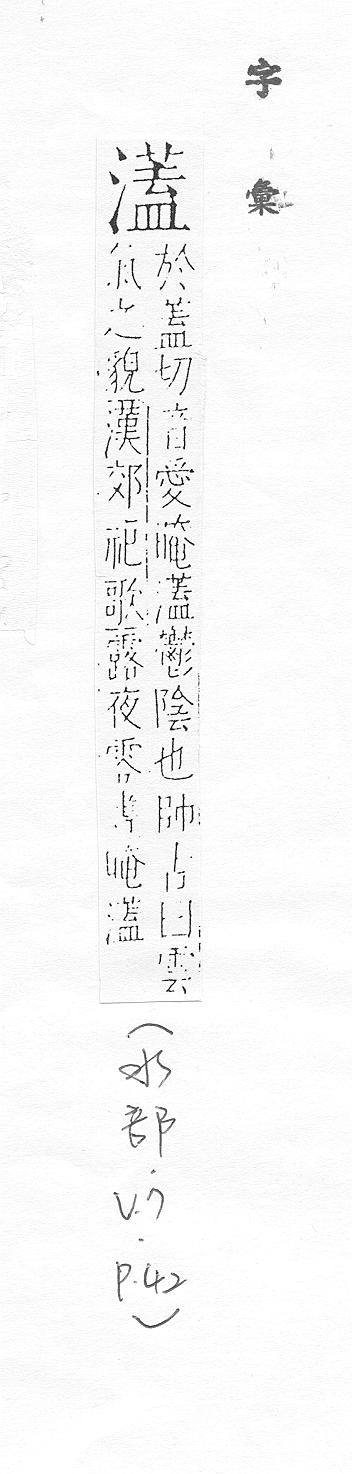 字彙
濭
於蓋切音愛晻濭鬱陰也師古曰雲
氣之貌漢郊祀歌露夜零晝晻濭
(水部.V.7.P.42)